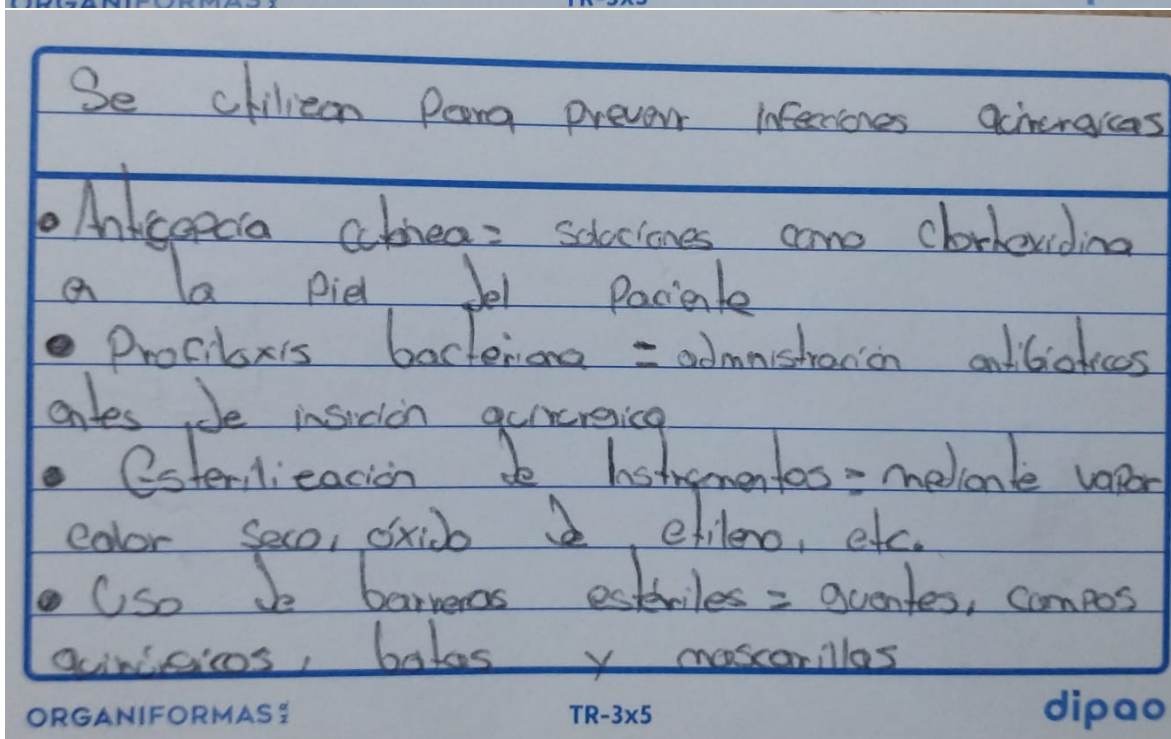 Se utilizan para prevenir infecciones quirurgicas
• Antisepcia cutánea = soluciones como clorhexidina
a la piel del paciente
• Profilaxis bacteriana = administración antibioticos
antes de insición quirurgica
• Esterilización de instrumentos = mediante vapor
calor seco, óxido de etileno, etc.
• Uso de barreras estériles = guantes, campos
quirúrgicos, batas y mascarillas
ORGANIFORMAS TR-3x5 dipao